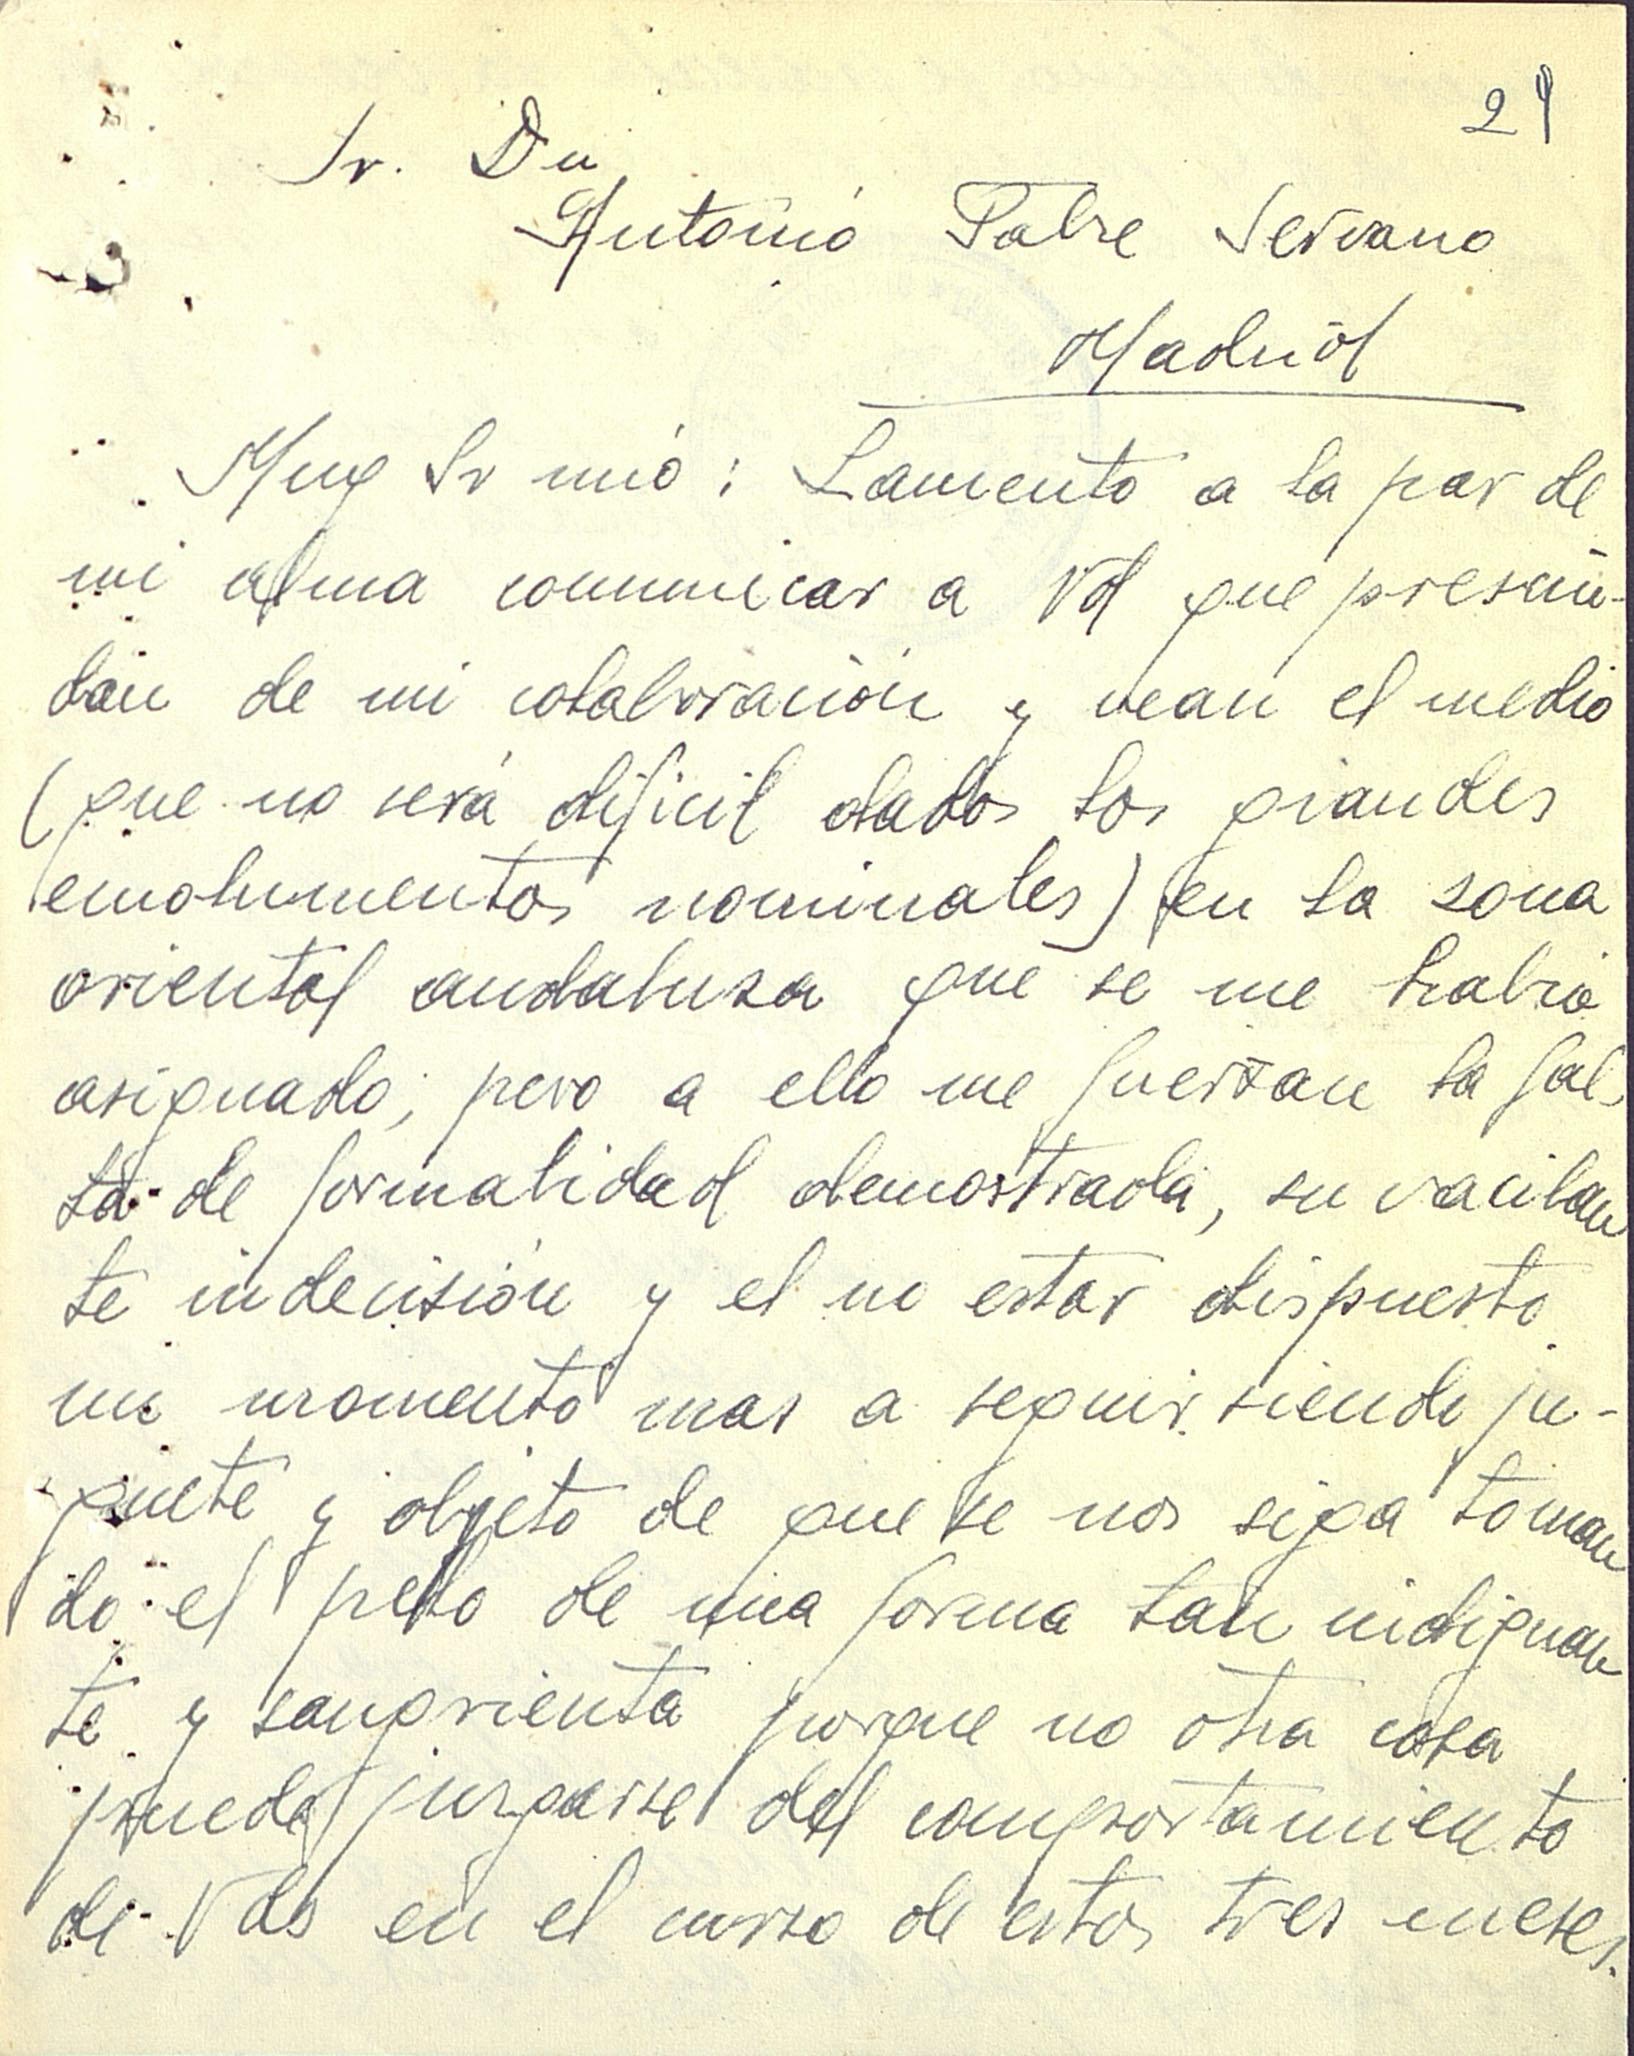 29
Sr. Dn
Antonio Fabre Serrano
Madrid
Muy Sr mio: Lamento a la par de
mi alma comunicar a Vd que prescin-
dan de mi colaboración y vean el medio
(que no será dificil dados los grandes
emolumentos nominales) en la zona
oriental andaluza que se me habia
asignado; pero a ello me fuerzan la fal-
ta de formalidad demostrada, su vacilan
te indecisión y el no estar dispuesto
un momento mas a seguir siendo ju-
guete y objeto de que se nos siga toman
do el pelo de una forma tan indignan
te y sangrienta porque no otra cosa
puede juzgarse del comportamiento
de Vds en el curso de estos tres meses.